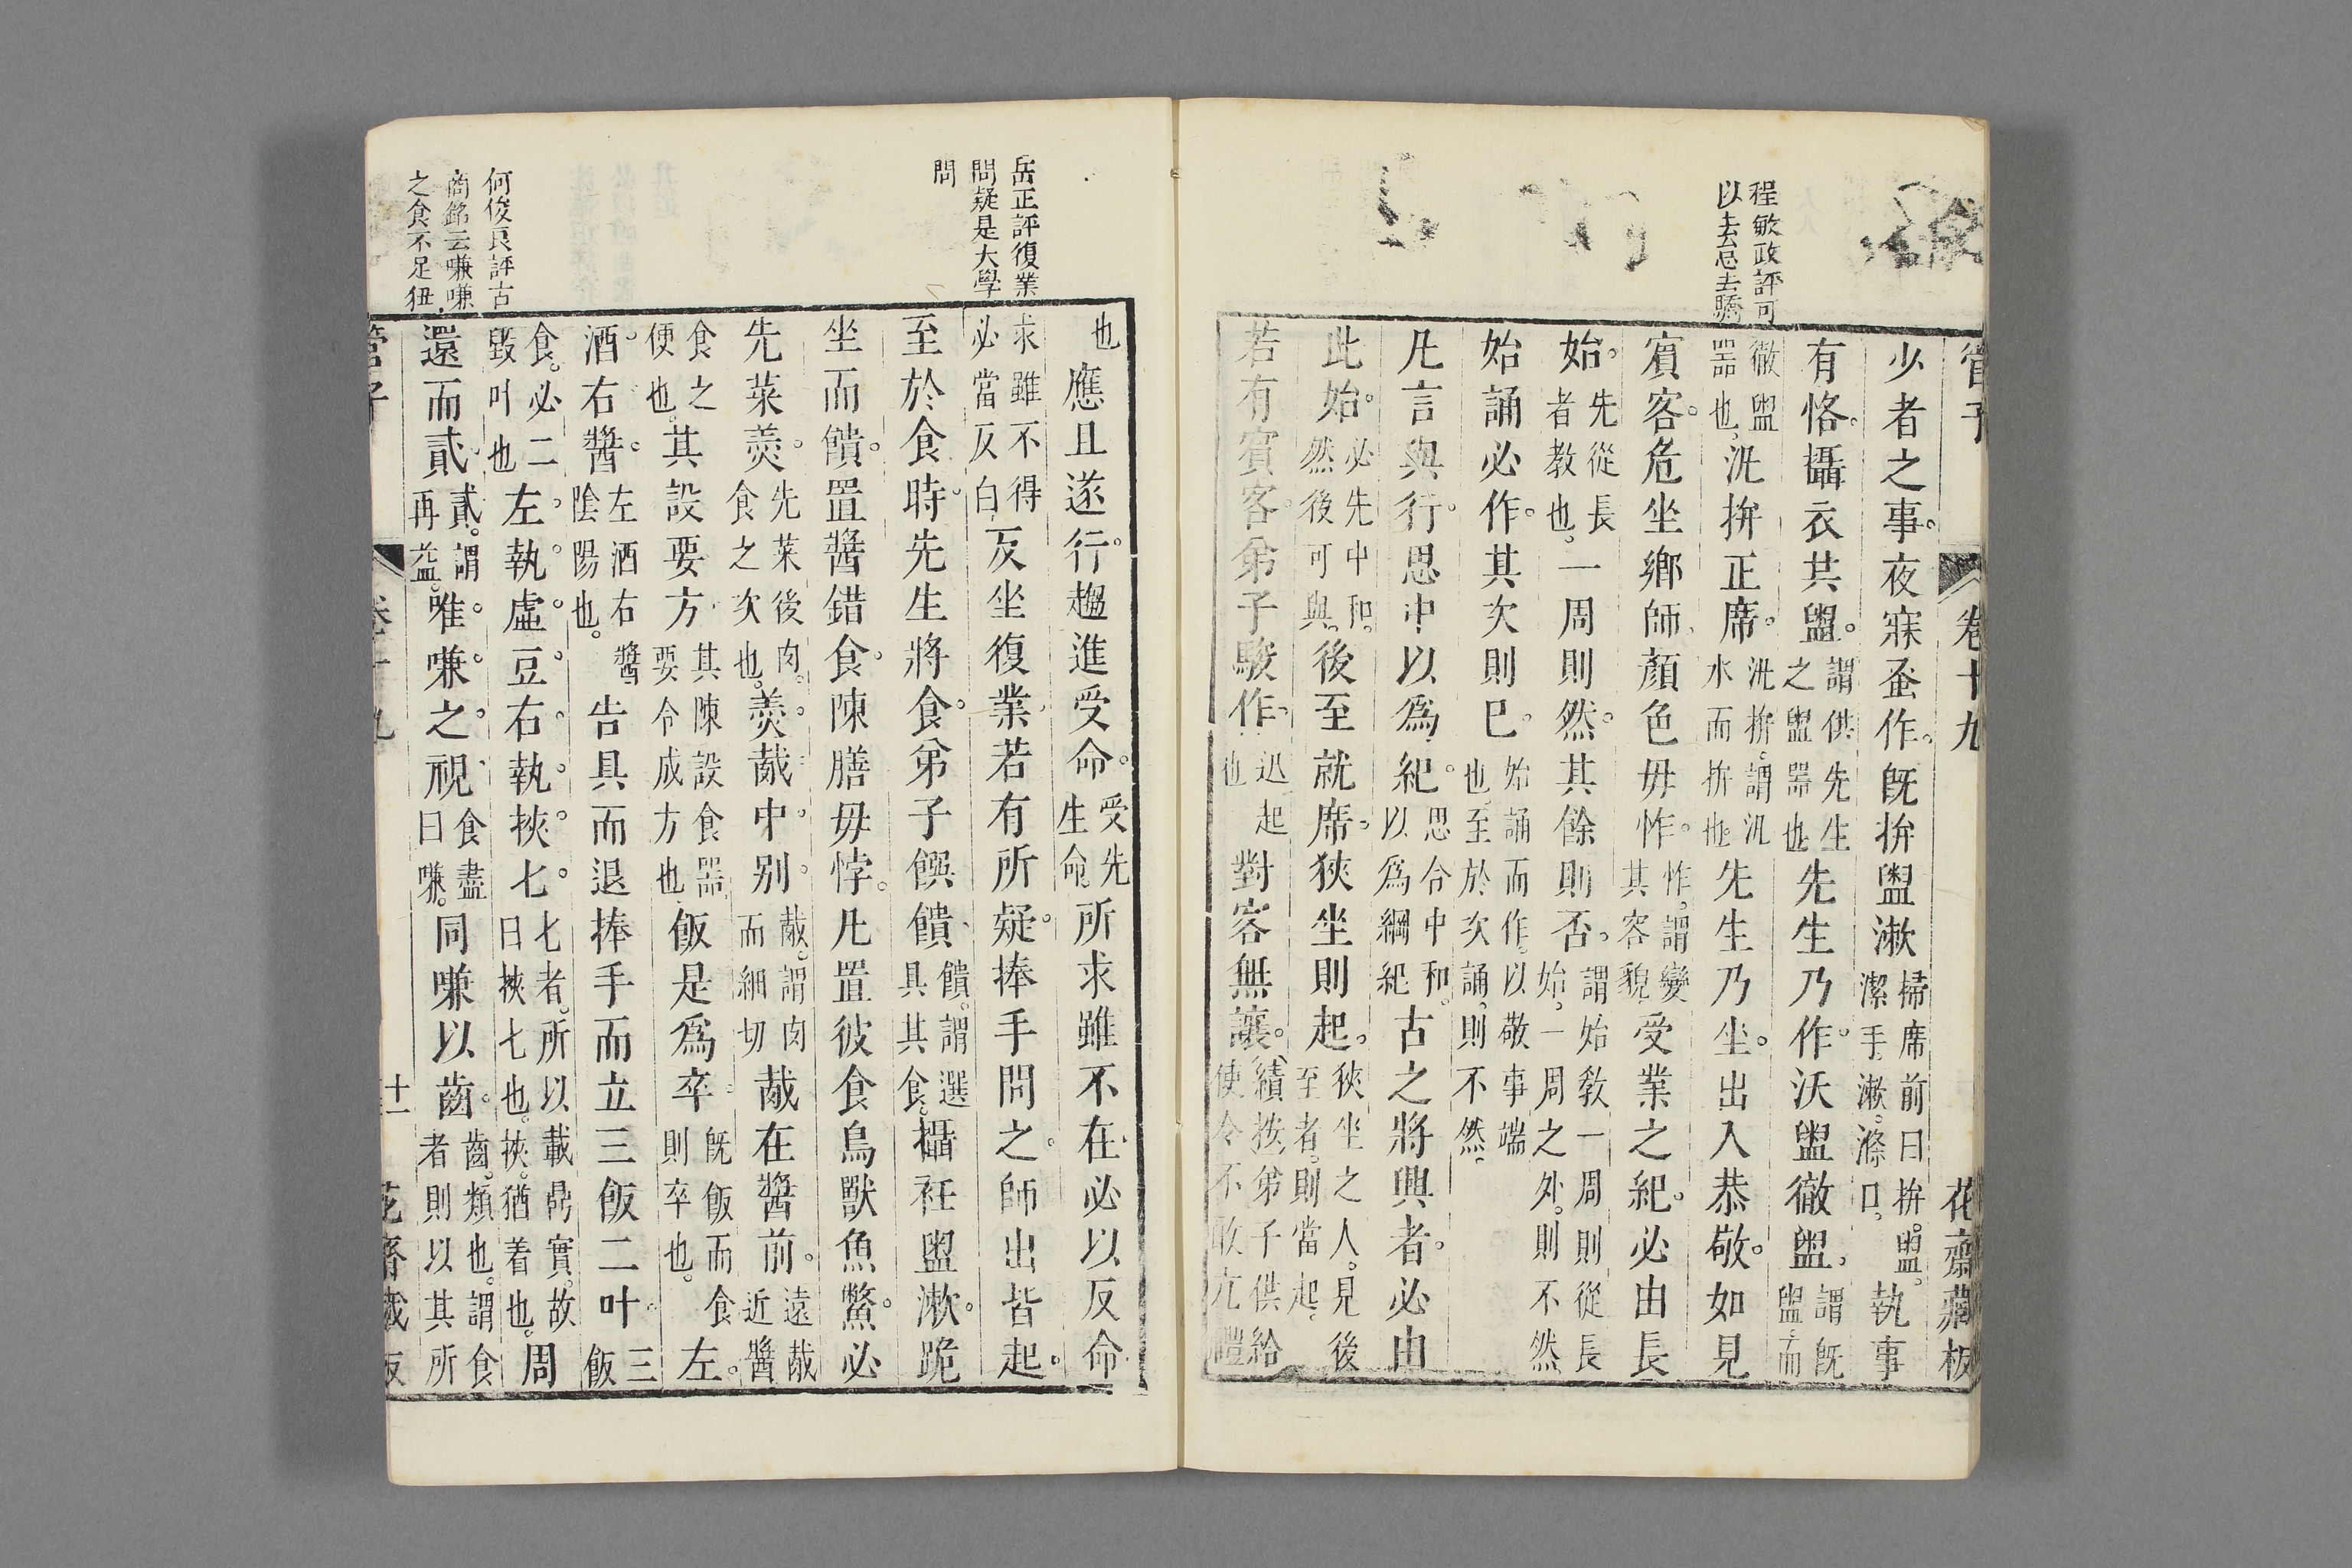 管子
卷十九
花齋藏板
程敏政評可
以去忌去驕
少者之事。夜寐蚤作。旣拚盥漱掃席前曰拚。盥。潔手。漱。滌口。執事
有恪。攝衣共盥。謂供先生之盥器也先生乃作。沃盥徹盥。謂旣盥而
徹盥器也。汎拚正席。汎拚。謂汎水而拚也。先生乃坐。出入恭敬。如見
賓客。危坐鄉師。顏色毋怍。怍。謂變其容貌受業之紀。必由長
始。先從長者教也。一周則然。其餘則否。謂始教一周則從長始。一周之外。則不然
始誦必作。其次則已。始誦而作。以敬事端也。至於次誦。則不然。
凡言與行。思中以爲紀。思令中和。以爲綱紀古之將興者。必由
此始。必先中和。然後可與。後至就席。狹坐則起。狹坐之人。見後至者。則當起。
若有賓客。弟子駿作。迅起也對客無讓。績按。弟子供給使令不敢亢禮
岳正評復業
問疑是大學
問
也應且遂行。趨進受命。受先生命。所求雖不在。必以反命。
求雖不得必當反白反坐復業。若有所疑。捧手問之。師出皆起。
至於食時。先生將食。弟子饌饋。饋。謂選具其食。攝衽盥漱。跪
坐而饋。置醬錯食。陳膳毋悖。凡置彼食鳥獸魚鱉。必
先菜羹。先菜後肉。食之次也。羹胾中。別。胾。謂肉而細切胾在醬前。遠胾近醬
食之便也。其設要方。其陳設食器要令成方也。飯是爲卒。旣飯而食則卒也。左。
酒。右醬。左酒右醬陰陽也。告具而退捧手而立三飯二叶。三飯
食。必二毀叶也左。執。虛。豆。右。執。挾。七。七者。所以載鼎實。故曰挾七也。挾。猶着也。周
還而貳。貳。謂再益。唯。嗛。之。視食盡曰嗛。同嗛以齒。齒。類也。謂食者則以其所
何俊良評古
商銘云嗛嗛
之食不足狃
管子
卷十九
十一
花齋藏板